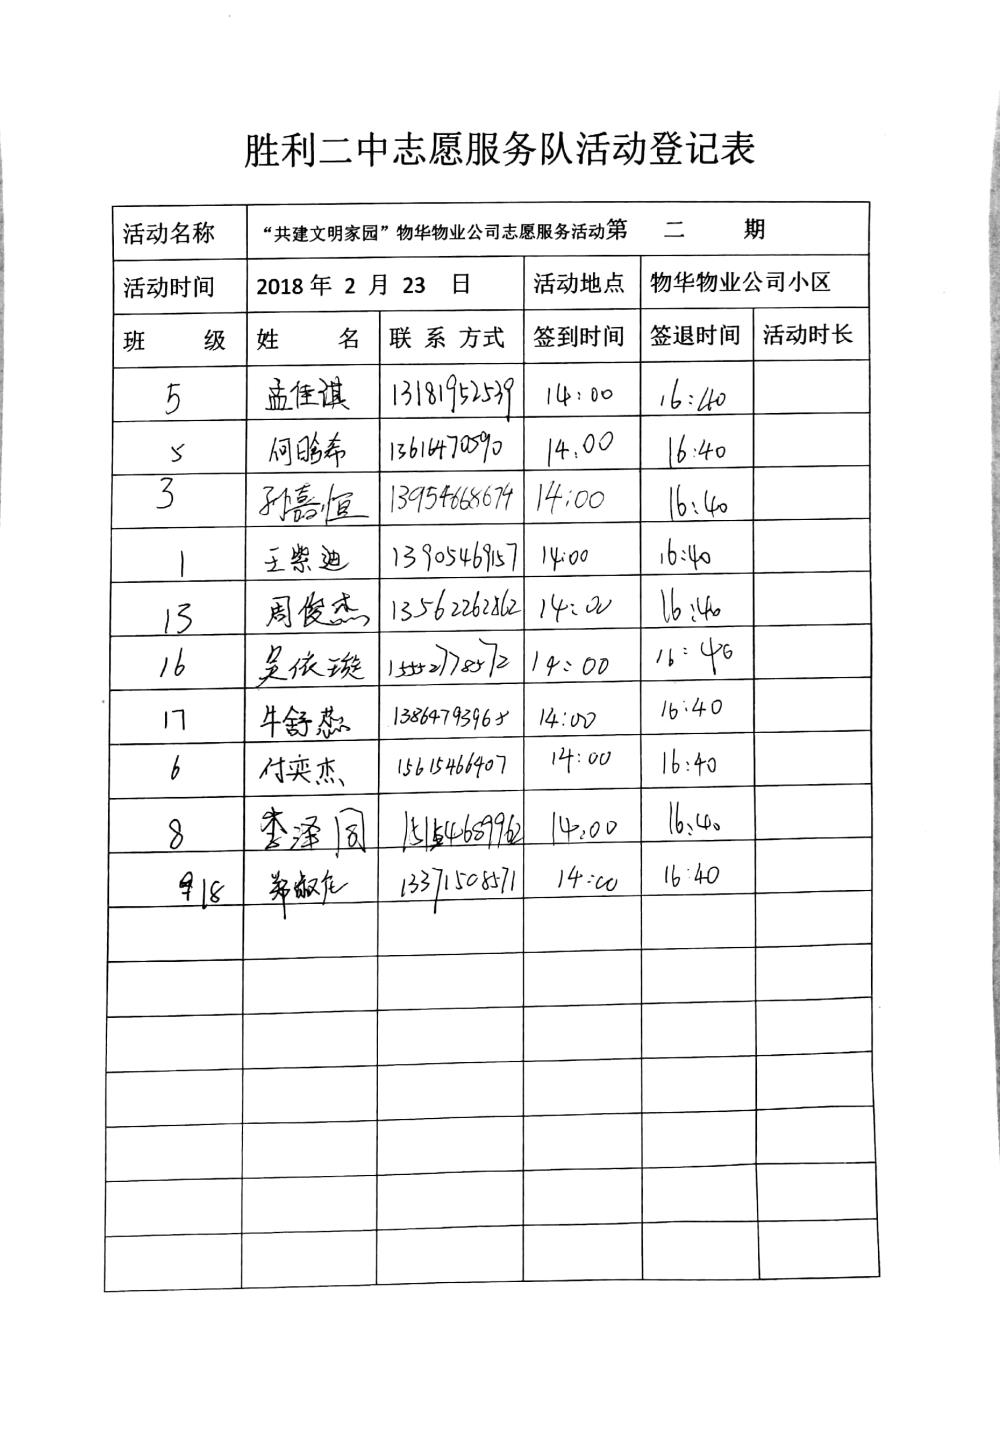 胜利二中志愿服务队活动登记表
活动名称 “共建文明家园”物华物业公司志愿服务活动第 二 期
活动时间 2018 年 2 月 23 日 活动地点 物华物业公司小区
班 级 姓 名 联 系 方式 签到时间 签退时间 活动时长
5 孟佳淇 13181952539 14:00 16:40
5 何晗希 13616470590 14:00 16:40
3 孙嘉恒 13954668674 14:00 16:40
1 王紫迪 13905469157 14:00 16:40
13 周俊杰 13562262862 14:00 16:40
16 吴依璇 15552778572 14:00 16:40
17 牛舒蕊 1386479396 14:00 16:40
6 付奕杰 15615466407 14:00 16:40
8 李泽同 15154689962 14:00 16:40
18 郑 13371508571 14:00 16:40